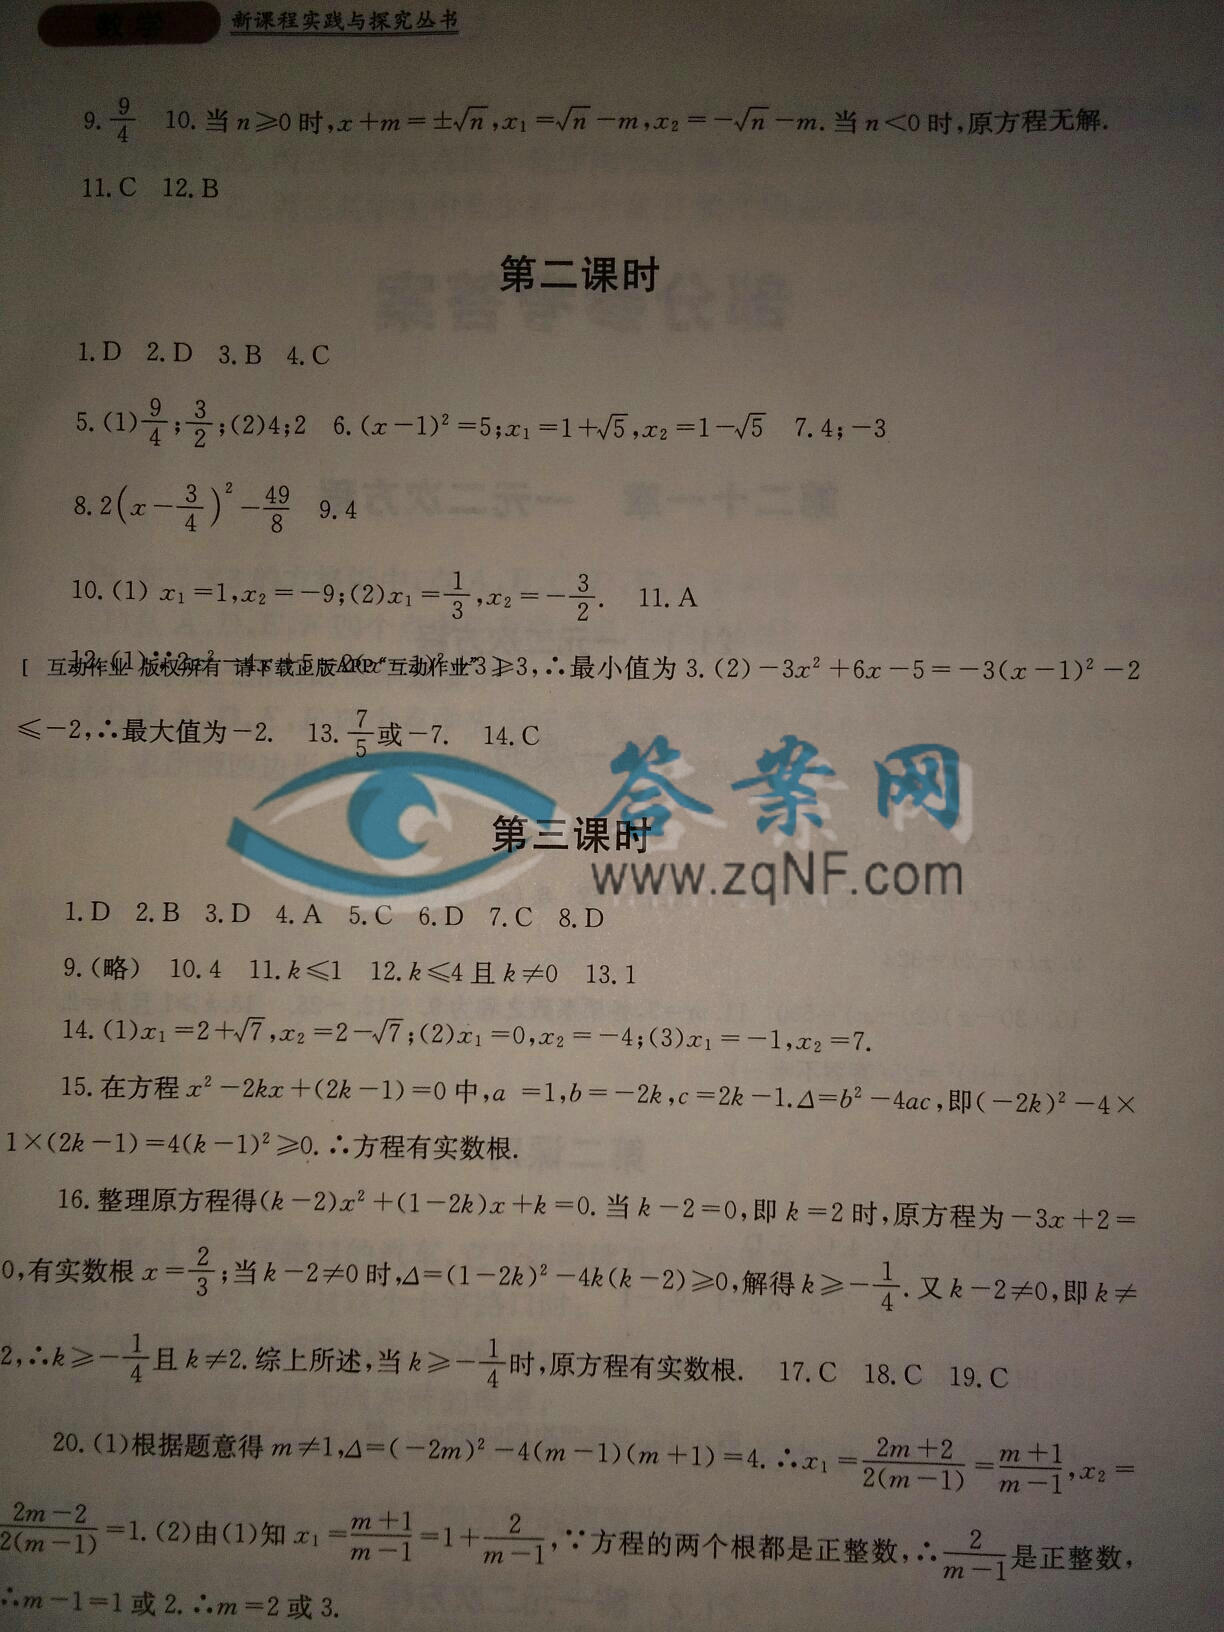 数学 新课程实践与探究丛书
9. 9/4 10. 当 n≥0 时,x+m=±√n,x₁=√n-m,x₂=-√n-m. 当 n<0 时,原方程无解.
11. C 12. B
第二课时
1. D 2. D 3. B 4. C
5. (1) 9/4; 3/2; (2)4;2 6. (x-1)²=5;x₁=1+√5,x₂=1-√5 7. 4;-3
8. 2(x-3/4)²-49/8 9. 4
10. (1) x₁=1,x₂=-9;(2)x₁=1/3,x₂=-3/2. 11. A
12. (1)∵2x²-4x+5=2(x-1)²+3≥3,∴最小值为 3. (2)-3x²+6x-5=-3(x-1)²-2
[ 互动作业 版权所有 请下载正版APP“互动作业” ]
≤-2,∴最大值为-2. 13. 7/5或-7. 14. C
答案网
www.zqNF.com
第三课时
1. D 2. B 3. D 4. A 5. C 6. D 7. C 8. D
9. (略) 10. 4 11. k≤1 12. k≤4 且 k≠0 13. 1
14. (1)x₁=2+√7,x₂=2-√7;(2)x₁=0,x₂=-4;(3)x₁=-1,x₂=7.
15. 在方程 x²-2kx+(2k-1)=0 中,a =1,b=-2k,c=2k-1.Δ=b²-4ac,即(-2k)²-4×
1×(2k-1)=4(k-1)²≥0. ∴方程有实数根.
16. 整理原方程得(k-2)x²+(1-2k)x+k=0. 当 k-2=0,即 k=2 时,原方程为-3x+2=
0,有实数根 x=2/3;当 k-2≠0 时,Δ=(1-2k)²-4k(k-2)≥0,解得 k≥-1/4. 又 k-2≠0,即 k≠
2,∴k≥-1/4且 k≠2. 综上所述,当 k≥-1/4时,原方程有实数根. 17. C 18. C 19. C
20. (1)根据题意得 m≠1,Δ=(-2m)²-4(m-1)(m+1)=4. ∴x₁=(2m+2)/(2(m-1))=(m+1)/(m-1),x₂=
(2m-2)/(2(m-1))=1. (2)由(1)知 x₁=(m+1)/(m-1)=1+2/(m-1),∵方程的两个根都是正整数,∴2/(m-1)是正整数,
∴m-1=1 或 2. ∴m=2 或 3.